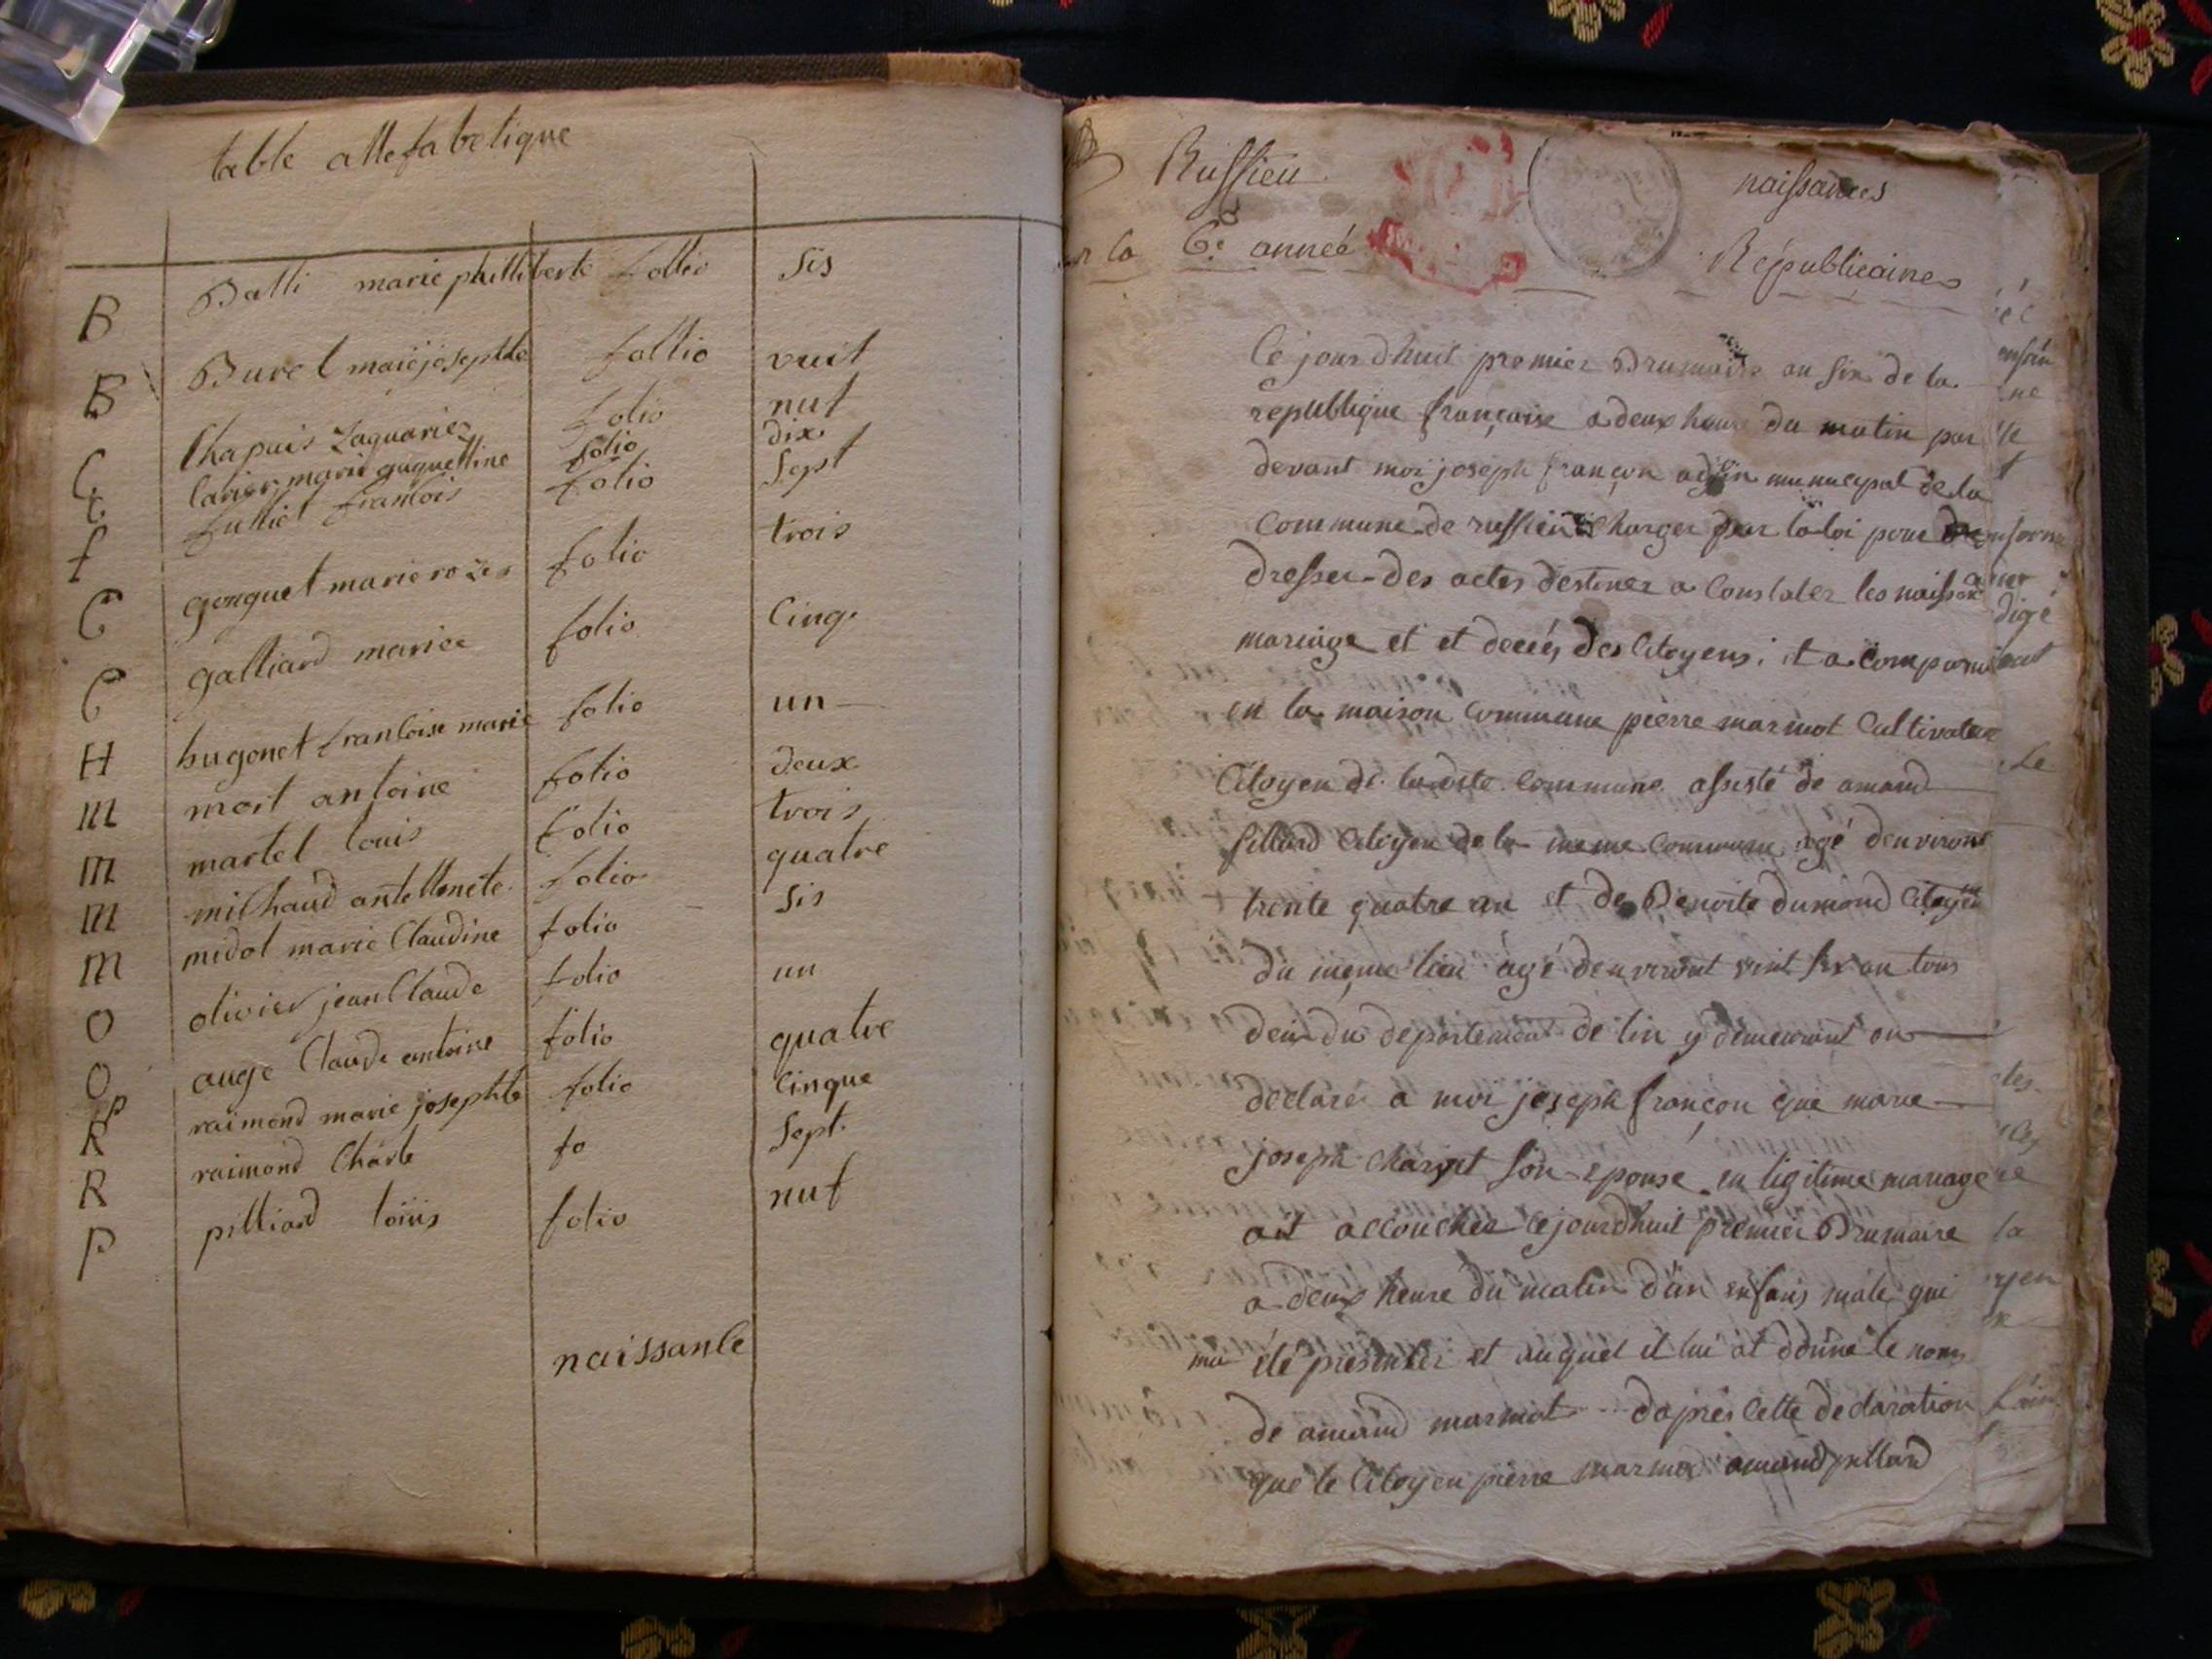 table allefabetique
B Balli marie philliberte follio sis
B Burel marie josephte follio vuit
C Chapuis Zaquaries folio nuf
C folio dix
f fulliet francois folio sept
G gonguet marie rozes folio trois
G galliard mariee folio cinq
H hugonet francoise marie folio un
m mort antoine folio deux
m martel louis folio trois
m milhaud folio quatre
m midol marie Claudine folio sis
O olivier jean Claude folio un
O auge Claude antoine folio quatre
R raimond marie josephte folio cinque
R raimond Charle fo sept
P pilliard loiiis folio nuf
naissance
Russieu naissances
la 6e année Républicaines
Ce jourdhuit premier Brumaire an six de la
republique française a deux heure du matin par
devant moi joseph françon municipal de la
Commune de russieu charger par la loi pour
dresser des actes destiner a Constater les naissan
mariage et et decés des Citoyens ; et a comparu
en la maison Commune pierre marmot Cultivateur
Citoyen de la dite Commune assisté de amand
pilliard Citoyen de la meme Commune agé denviront
trente quatre an et de Benoite dumond Citoyen
du meme lieu agé denviront vint six an tous
deux du departement de lin y demeurant on
declaré a moi joseph françon que marie
joseph son epouse en ligitime mariage
ait accouchée cejourdhuit premier Brumaire
a deux heure du matin dun enfans male qui
ma été presenter et auquel il lui at donné le nom
de amand marmot dapres cette declaration
que le Citoyen pierre marmot amand pilliard